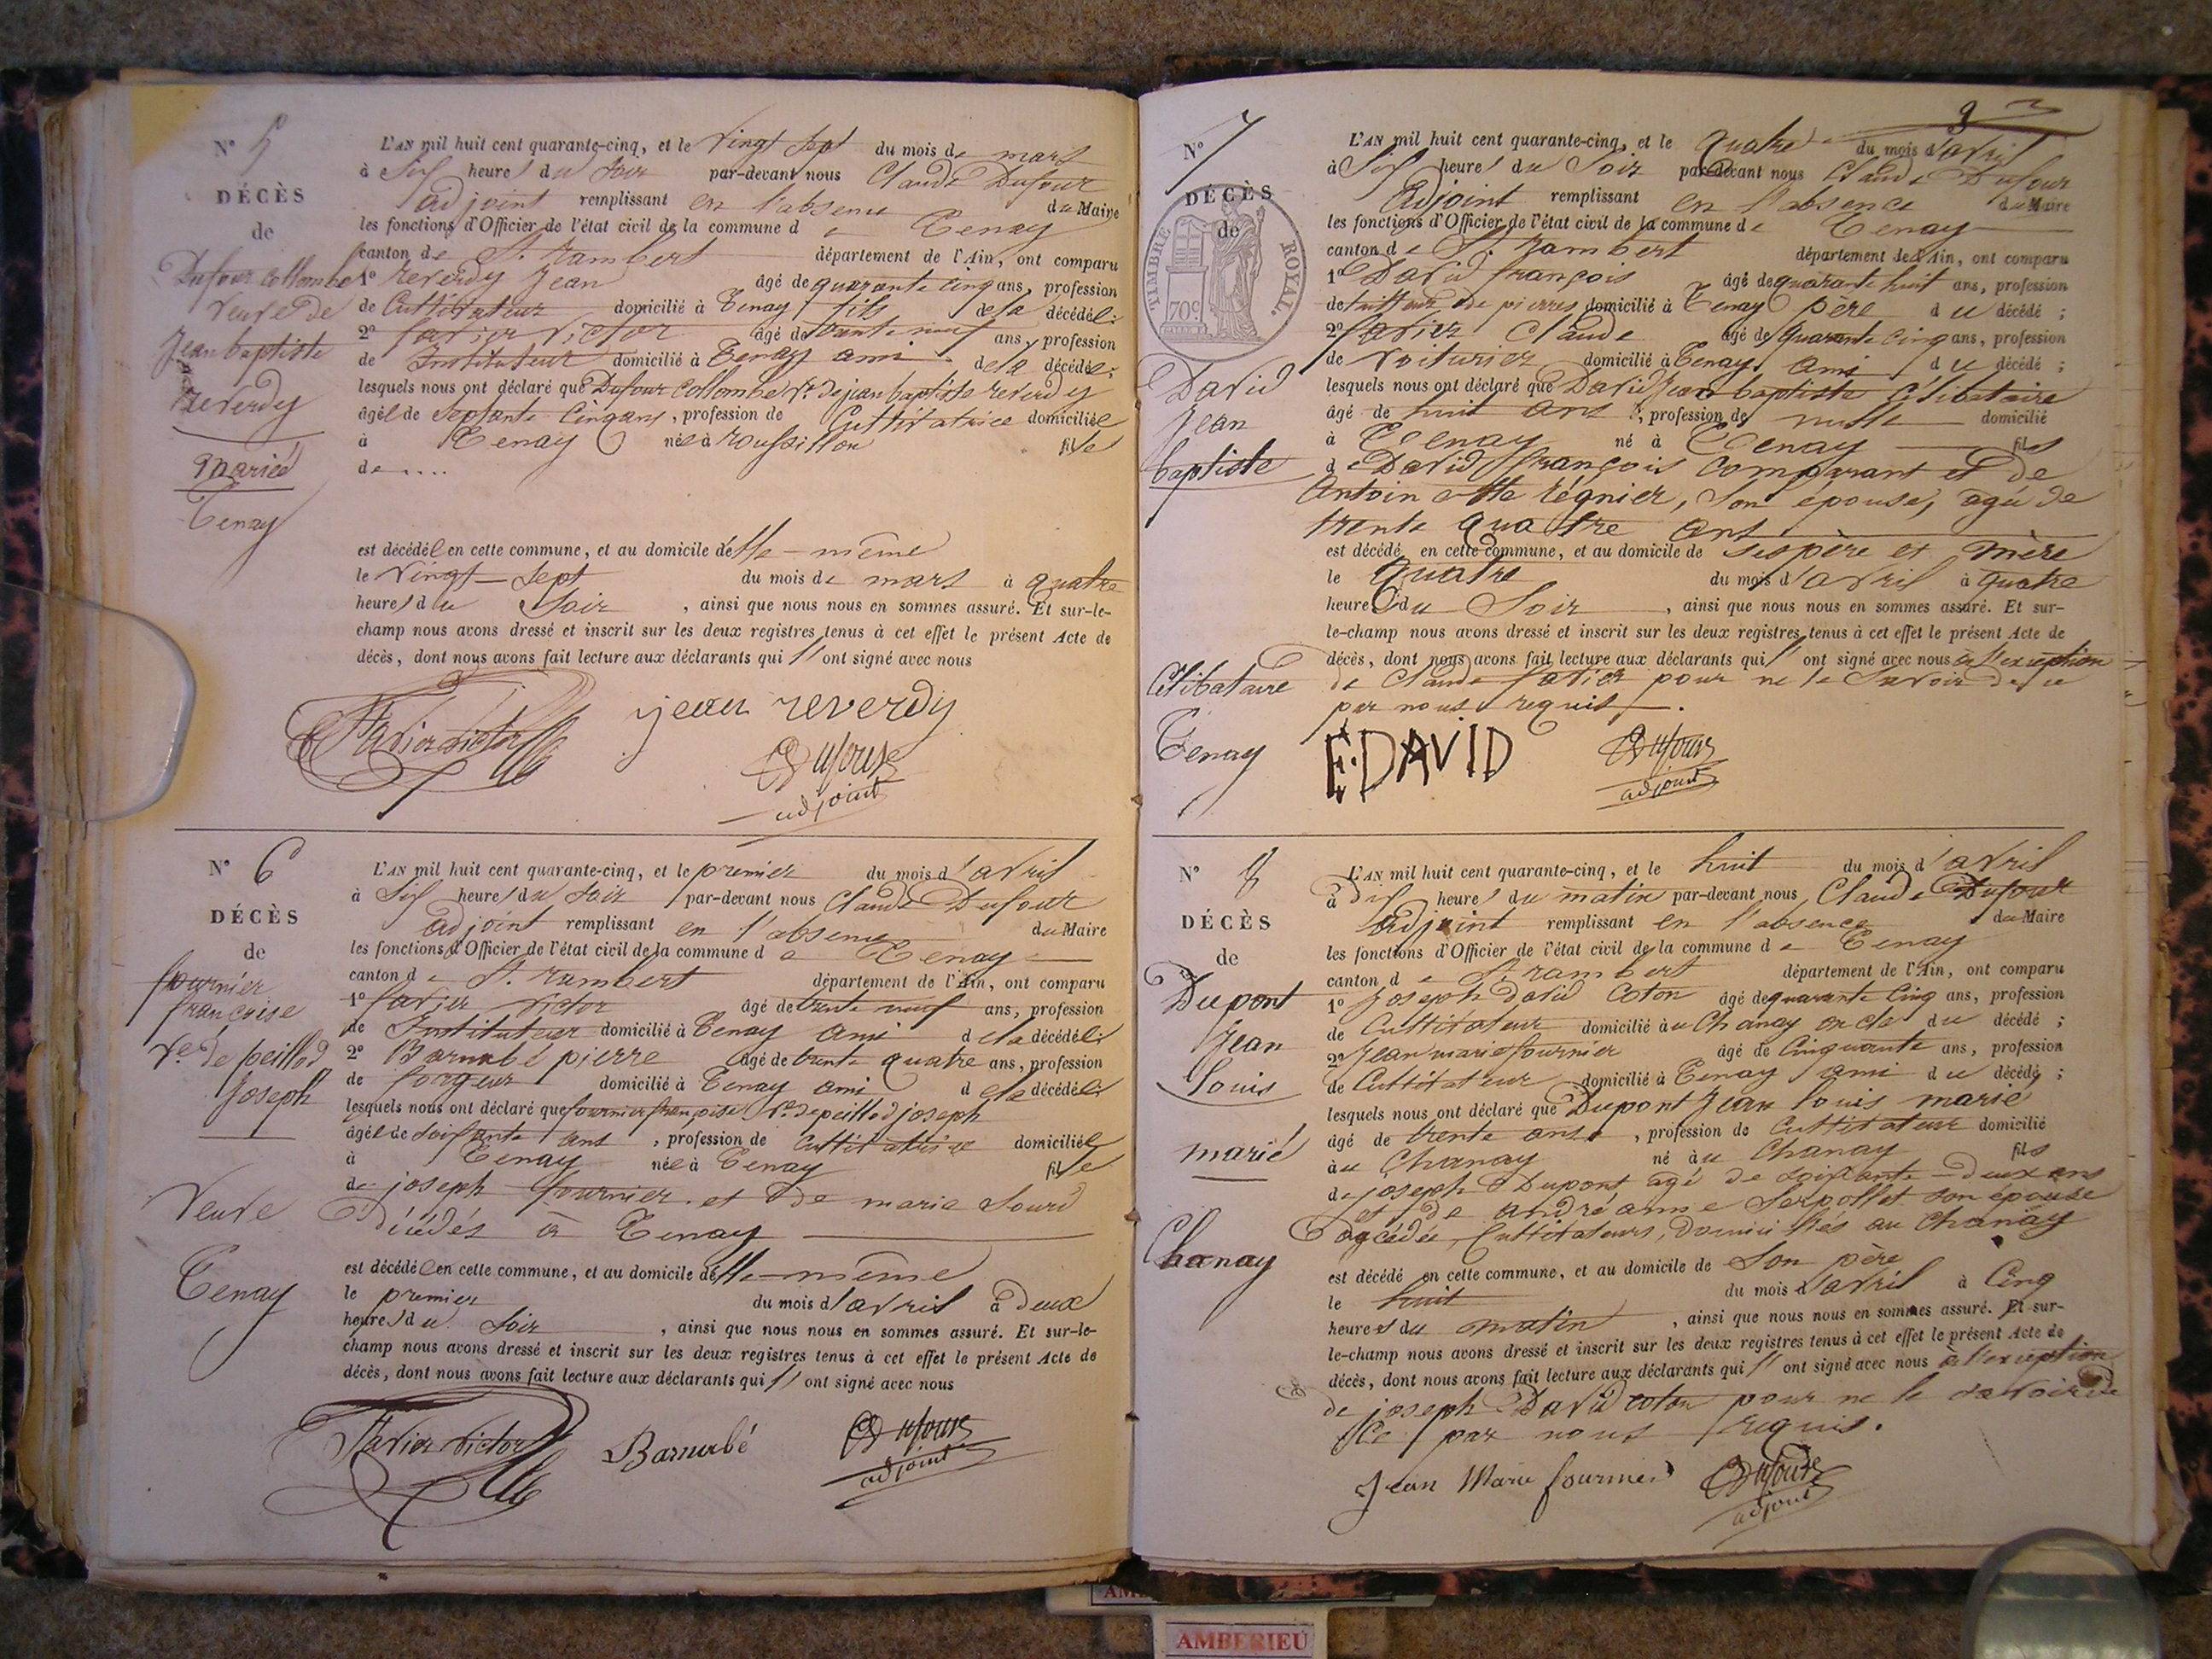 N° 5
DÉCÈS
de
Dufour Collombe
Veuve de
Jean baptiste
Reverdy
Mariée
Tenay
L'AN mil huit cent quarante-cinq, et le Vingt Sept du mois de mars
à Six heures du Soir par-devant nous Claude Dufour
adjoint remplissant en l'absence du Maire
les fonctions d'Officier de l'état civil de la commune de Tenay
canton de St. Rambert département de l'Ain, ont comparu
1° Reverdy Jean âgé de quarante cinq ans, profession
de Cultivateur domicilié à Tenay fils de la décédée;
2° favier Victor âgé de trente neuf ans, profession
de Instituteur domicilié à Tenay ami de la décédée;
lesquels nous ont déclaré que Dufour Collombe Ve. de jean baptiste reverdy
âgée de Septante Cinq ans, profession de Cultivatrice domiciliée
à Tenay née à roussillon fille
de ....
est décédée en cette commune, et au domicile d'elle-même
le Vingt-Sept du mois de mars à quatre
heures du Soir, ainsi que nous nous en sommes assuré. Et sur-le-
champ nous avons dressé et inscrit sur les deux registres tenus à cet effet le présent Acte de
décès, dont nous avons fait lecture aux déclarants qui l'ont signé avec nous
Favier Victor jean reverdy
Dufour
adjoint
N° 6
DÉCÈS
de
fournier
françoise
Ve. de peillod
Joseph
Veuve
Tenay
L'AN mil huit cent quarante-cinq, et le premier du mois d'avril
à Six heures du Soir par-devant nous Claude Dufour
adjoint remplissant en l'absence du Maire
les fonctions d'Officier de l'état civil de la commune de Tenay
canton de St. rambert département de l'Ain, ont comparu
1° favier Victor âgé de trente neuf ans, profession
de Instituteur domicilié à Tenay ami de la décédée;
2° Barnabé pierre âgé de trente quatre ans, profession
de forgeur domicilié à Tenay ami de la décédée;
lesquels nous ont déclaré que fournier françoise Ve. de peillod joseph
âgée de Soixante ans, profession de Cultivatrice domiciliée
à Tenay née à Tenay fille
de joseph fournier et de marie Sourd
décédés à Tenay
est décédée en cette commune, et au domicile d'elle-même
le premier du mois d'avril à deux
heures du Soir, ainsi que nous nous en sommes assuré. Et sur-le-
champ nous avons dressé et inscrit sur les deux registres tenus à cet effet le présent Acte de
décès, dont nous avons fait lecture aux déclarants qui l'ont signé avec nous
Favier Victor Barnabé Dufour
adjoint
3
N° 7
DÉCÈS
de
TIMBRE ROYAL.
70c
David
Jean
baptiste
Célibataire
Tenay
L'AN mil huit cent quarante-cinq, et le quatre du mois d'avril
à Six heures du Soir par-devant nous Claude Dufour
adjoint remplissant en l'absence du Maire
les fonctions d'Officier de l'état civil de la commune de Tenay
canton de St. Rambert département de l'Ain, ont comparu
1° David françois âgé de quarante huit ans, profession
de tailleur de pierres domicilié à Tenay père du décédé;
2° favier Claude âgé de quarante cinq ans, profession
de Voiturier domicilié à Tenay ami du décédé;
lesquels nous ont déclaré que David Jean baptiste Célibataire
âgé de huit ans, profession de nulle domicilié
à Tenay né à Tenay fils
de David françois comparant et de
Antoinette régnier, Son épouse, agée de
trente quatre ans
est décédé en cette commune, et au domicile de Ses père et mère
le Quatre du mois d'avril à quatre
heures du Soir, ainsi que nous nous en sommes assuré. Et sur-
le-champ nous avons dressé et inscrit sur les deux registres tenus à cet effet le présent Acte de
décès, dont nous avons fait lecture aux déclarants qui l'ont signé avec nous à l'exception
de Claude favier pour ne le Savoir de ce
par nous requis.
F. DAVID Dufour
adjoint
N° 8
DÉCÈS
de
Dupont
Jean
Louis
marié
Chanay
L'AN mil huit cent quarante-cinq, et le huit du mois d'avril
à dix heures du matin par-devant nous Claude Dufour
adjoint remplissant en l'absence du Maire
les fonctions d'Officier de l'état civil de la commune de Tenay
canton de St rambert département de l'Ain, ont comparu
1° Joseph David Coton âgé de quarante Cinq ans, profession
de Cultivateur domicilié au Chanay oncle du décédé;
2° Jean marie fournier âgé de Cinquante ans, profession
de Cultivateur domicilié à Tenay ami du décédé;
lesquels nous ont déclaré que Dupont Jean Louis marié
âgé de trente ans, profession de Cultivateur domicilié
au Chanay né au Chanay fils
de joseph Dupont agé de soixante-deux ans
et de andré anne Serpollet son épouse
décédée, Cultivateurs, domiciliés au Chanay
est décédé en cette commune, et au domicile de Son père
le huit du mois d'avril à Cinq
heures du matin, ainsi que nous nous en sommes assuré. Et sur-
le-champ nous avons dressé et inscrit sur les deux registres tenus à cet effet le présent Acte de
décès, dont nous avons fait lecture aux déclarants qui l'ont signé avec nous à l'exception
de joseph David coton pour ne le savoir de
ce par nous requis.
Jean Marie fournier Dufour
adjoint
AMBERIEU